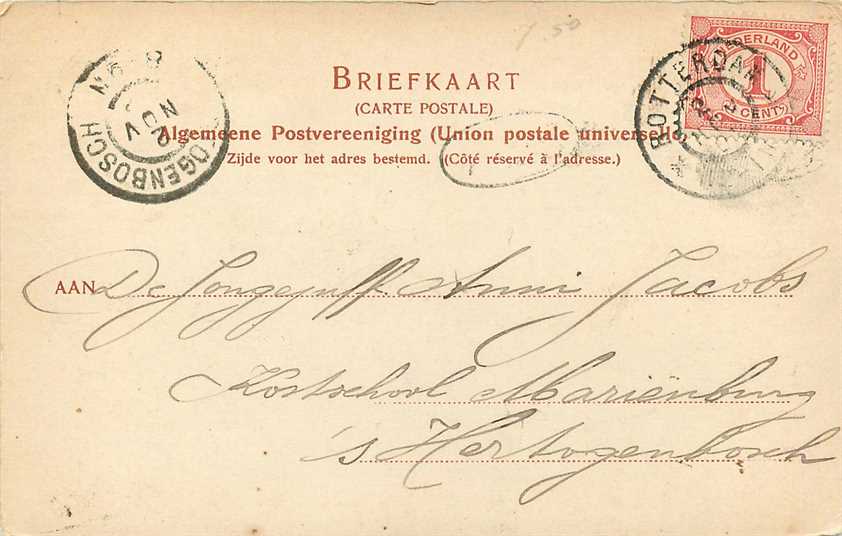 7.50
NEDERLAND
1
CENT
ROTTERDAM
OGENBOSCH
NOV
BRIEFKAART
(CARTE POSTALE)
Algemeene Postvereeniging (Union postale universelle
Zijde voor het adres bestemd. (Côté réservé à l'adresse.)
AAN De Jongejuff. Anni Jacobs
Kostschool Mariënburg
's Hertogenbosch